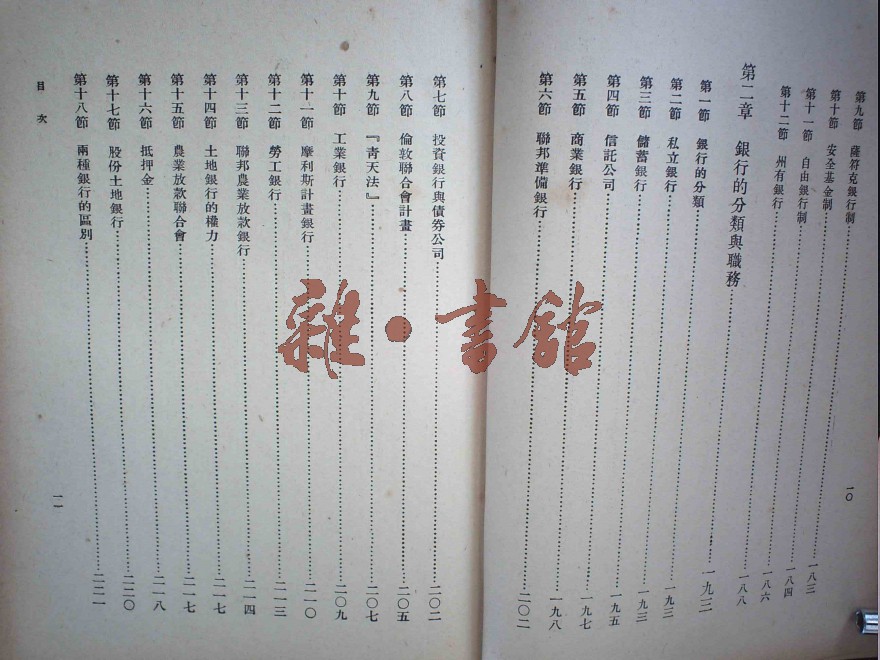 第九節 薩符克銀行制……一八三
第十節 安全基金制……一八四
第十一節 自由銀行制……一八六
第十二節 州有銀行……一八八
第二章 銀行的分類與職務……一九三
第一節 銀行的分類……一九三
第二節 私立銀行……一九三
第三節 儲蓄銀行……一九五
第四節 信託公司……一九七
第五節 商業銀行……一九八
第六節 聯邦準備銀行……二〇二
一〇
第七節 投資銀行與債券公司……二〇二
第八節 倫敦聯合會計畫……二〇五
第九節 『青天法』……二〇七
第十節 工業銀行……二〇九
第十一節 摩利斯計畫銀行……二一〇
第十二節 勞工銀行……二一三
第十三節 聯邦農業放款銀行……二一四
第十四節 土地銀行的權力……二一七
第十五節 農業放款聯合會……二一七
第十六節 抵押金……二一八
第十七節 股份土地銀行……二二〇
第十八節 兩種銀行的區別……二二一
目次
一一
雜·書館